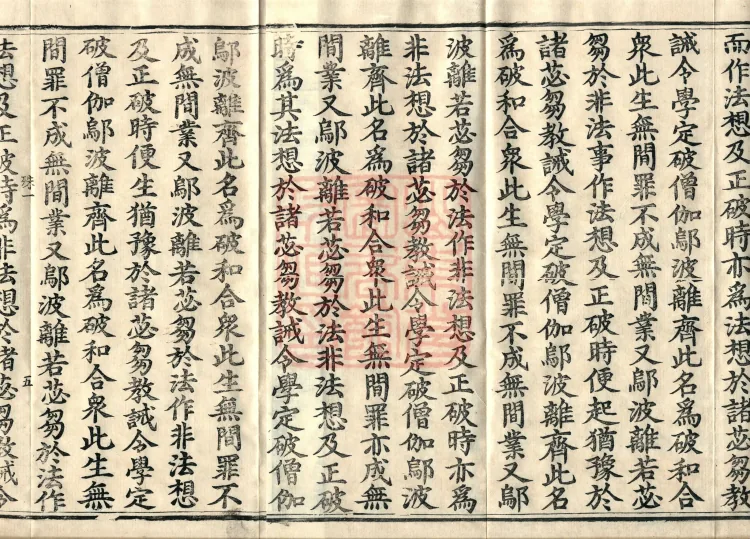 而作法想及正破時亦爲法想於諸苾芻教
誡令學定破僧伽鄔波離齊此名爲破和合
衆此生無間罪不成無間業又鄔波離若苾
芻於非法事作法想及正破時便起猶豫於
諸苾芻教誡令學定破僧伽鄔波離齊此名
爲破和合衆此生無間罪不成無間業又鄔
波離若苾芻於法作非法想及正破時亦爲
非法想於諸苾芻教誡令學定破僧伽鄔波
離齊此名爲破和合衆此生無間罪亦成無
間業又鄔波離若苾芻於法非法想及正破
時爲其法想於諸苾芻教誡令學定破僧伽
鄔波離齊此名爲破和合衆此生無間罪不
成無間業又鄔波離若苾芻於法作非法想
及正破時便生猶豫於諸苾芻教誡令學定
破僧伽鄔波離齊此名爲破和合衆此生無
間罪不成無間業又鄔波離若苾芻於法作
殊一
五
法想及正破時爲非法想於諸苾芻教誡令